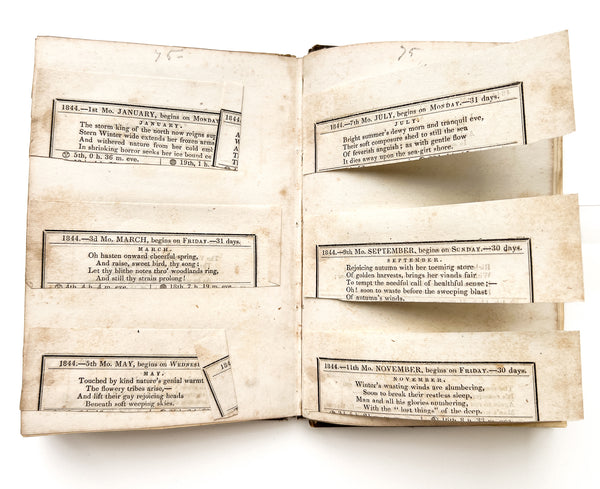 75
1844.—1st Mo. JANUARY, begins on MONDAY
JANUARY.
The storm king of the north now reigns sup
Stern Winter wide extends her frozen arms
And withered nature from her cold emb
In shrinking horror seeks her ice bound
5th, 0 h. 36 m. eve. 19th, 1 h.
1844.—3d Mo. MARCH, begins on FRIDAY.—31 days.
MARCH.
Oh hasten onward cheerful spring,
And raise, sweet bird, thy song;
Let thy blithe notes thro' woodlands ring,
And still thy strains prolong!
4th, 4 h. 4 m. 18th, 7 h. 19 m.
1844.—5th Mo. MAY, begins on WEDNESD
MAY.
Touched by kind nature's genial warmt
The flowery tribes arise,—
And lift their gay rejoicing heads
Beneath soft weeping skies.
75
1844.—7th Mo. JULY, begins on MONDAY.—31 days.
JULY.
Bright summer's dewy morn and tranquil eve,
Their soft composure shed to still the sea
Of feverish anguish; as with gentle flow
It dies away upon the sea-girt shore.
1844.—9th Mo. SEPTEMBER, begins on SUNDAY.—30 days.
SEPTEMBER.
Rejoicing autumn with her teeming store
Of golden harvests, brings her viands fair
To tempt the needful call of healthful sense;—
Oh! soon to waste before the sweeping blast
Of autumn's winds.
1844.—11th Mo. NOVEMBER, begins on FRIDAY.—30 days.
NOVEMBER.
Winter's wasting winds are slumbering,
Soon to break their restless sleep,
Man and all his glories numbering,
With the "lost things" of the deep.